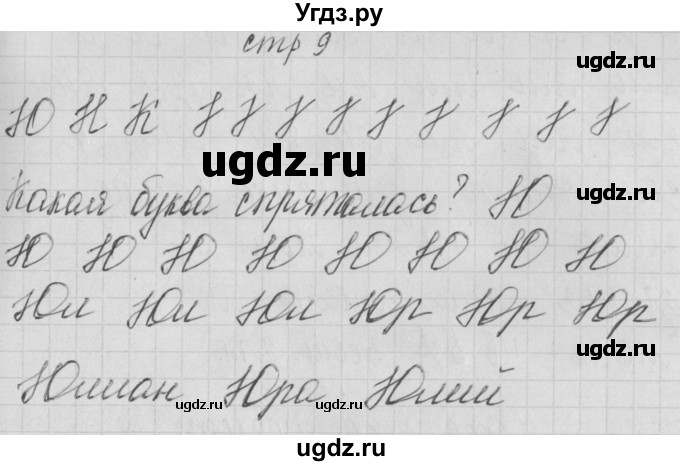 Угдз.ру
стр 9
ugdz.ru
Ю Н К
ugdz.ru
Какая буква спряталась? Ю
ugdz.ru
Ю Ю Ю Ю Ю Ю Ю Ю
Юл Юл Юл Юр Юр Юр
ugdz.ru
Юлиан Юра Юлий
ugdz.ru ugdz.ru
ugdz.ru